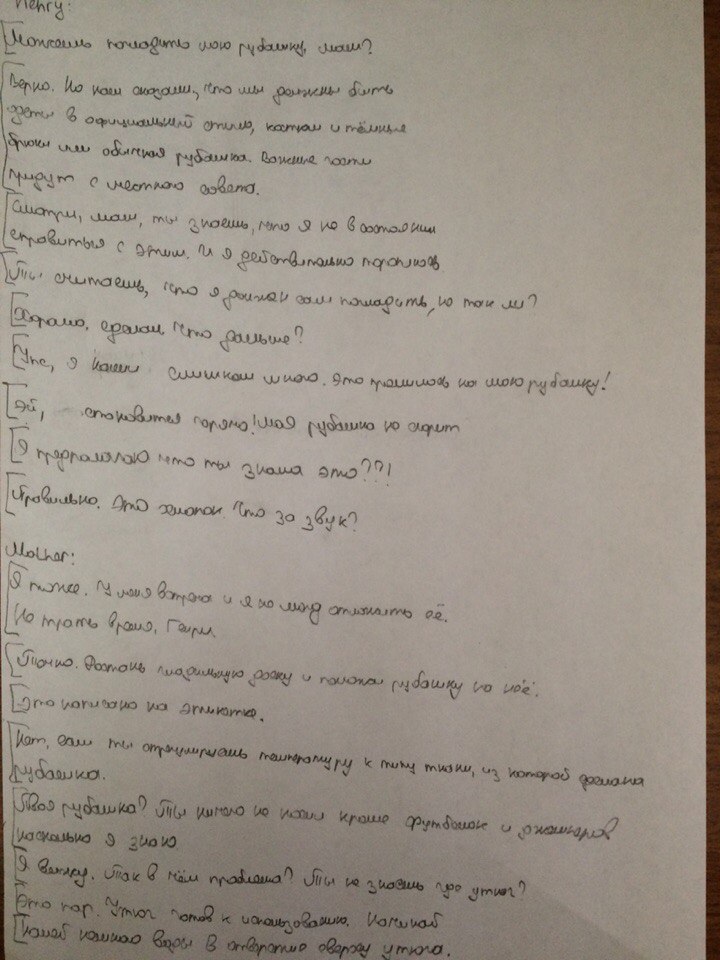 Henry:
Можешь погладить мою рубашку, мам?
Верно. Но нам сказали, что мы должны быть
одеты в официальный стиль, костюм и тёмные
брюки или обычная рубашка. Важные гости
придут с местного совета.
Смотри, мам, ты знаешь, что я не в состоянии
справиться с этим. И я действительно тороплюсь
Ты считаешь, что я должен сам погладить, не так ли?
Хорошо, сделал. Что дальше?
Упс, я налил слишком много. Это пролилось на мою рубашку!
Эй, становится горячо! Моя рубашка не сгорит
Я предполагаю что ты знала это??!
Правильно. Это хлопок. Что за звук?
Mother:
Я тоже. У меня встреча и я не могу отложить её.
Не трать время, Генри.
Точно. Достань гладильную доску и положи рубашку на неё.
Это написано на этикетке.
Нет, если ты отрегулируешь температуру к типу ткани, из которой сделана
рубашка.
Твоя рубашка? Ты ничего не носил кроме футболок и джемперов
насколько я знаю
Я вижу. Так в чём проблема? Ты не знаешь где утюг?
Это пар. Утюг готов к использованию. Начинай
Налей немного воды в отверстие сверху утюга.